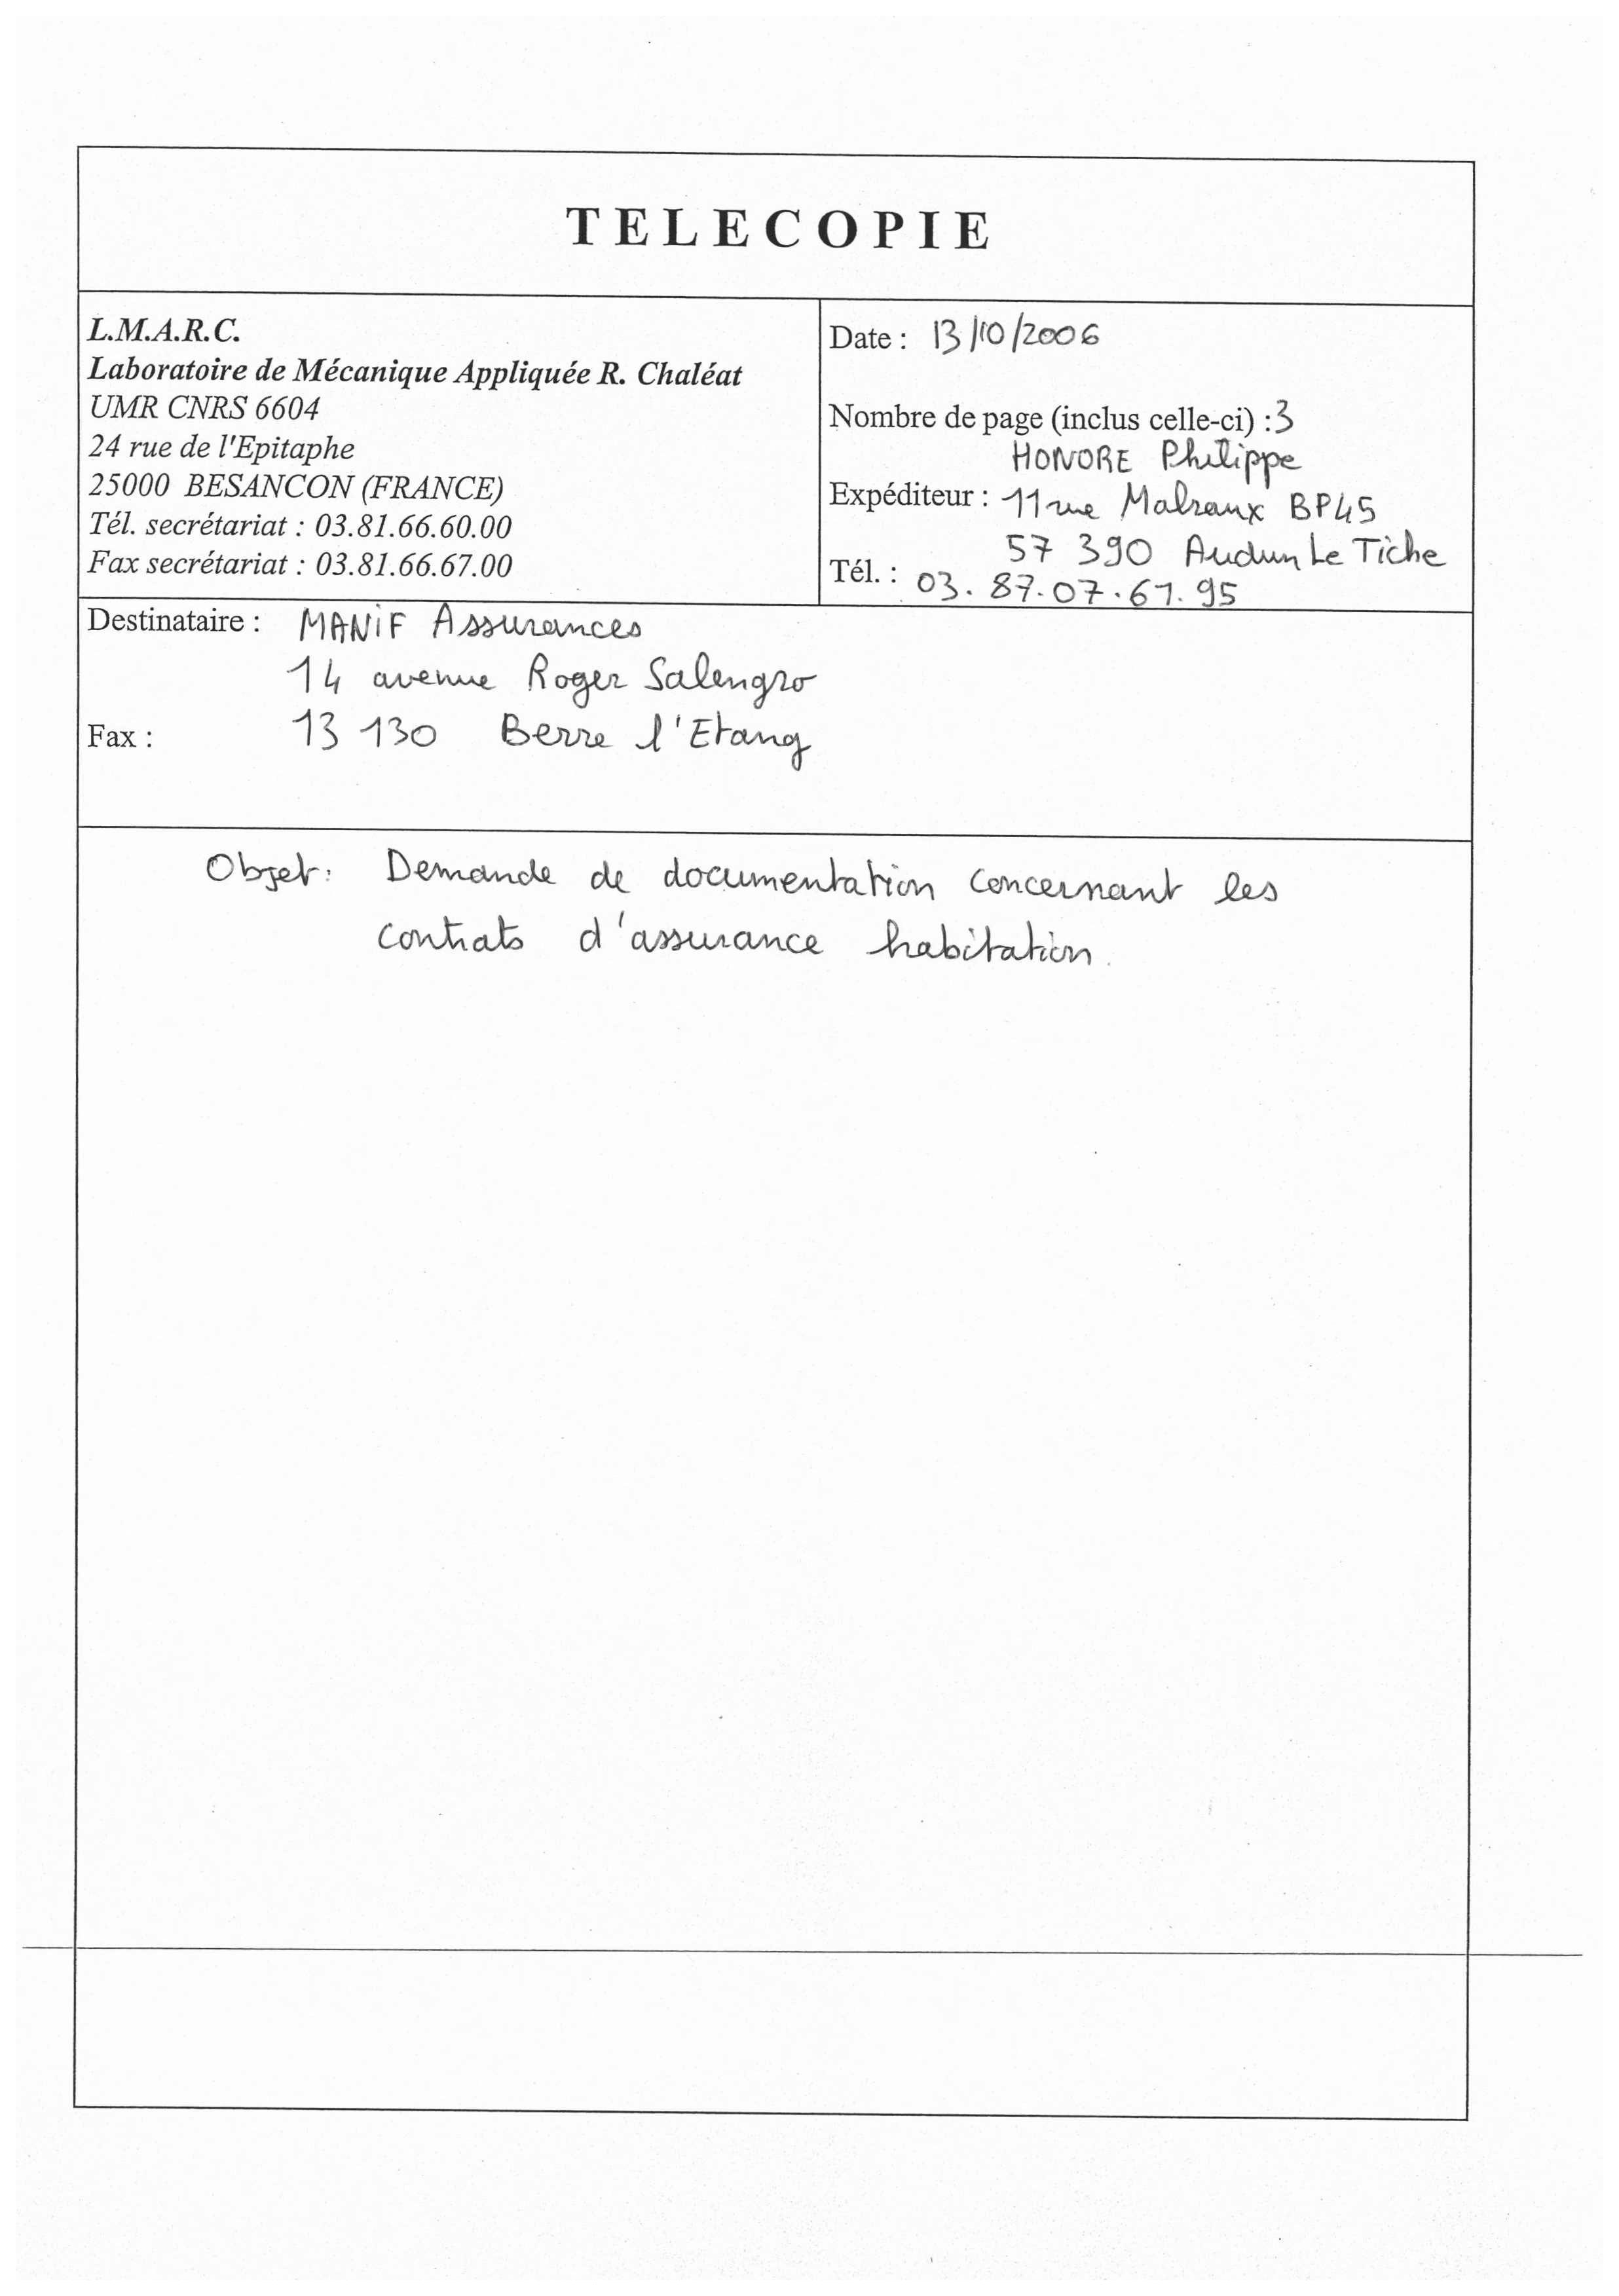 TELECOPIE
L.M.A.R.C.
Laboratoire de Mécanique Appliquée R. Chaléat
UMR CNRS 6604
24 rue de l'Epitaphe
25000 BESANCON (FRANCE)
Tél. secrétariat : 03.81.66.60.00
Fax secrétariat : 03.81.66.67.00
Date : 13/10/2006
Nombre de page (inclus celle-ci) :3
HONORE Philippe
Expéditeur : 11 rue Malraux BP45
57 390 Audun Le Tiche
Tél. : 03.87.07.61.95
Destinataire : MANiF Assurances
14 avenue Roger Salengro
Fax : 13 130 Berre l'Etang
Objet: Demande de documentation concernant les
contrats d'assurance habitation.